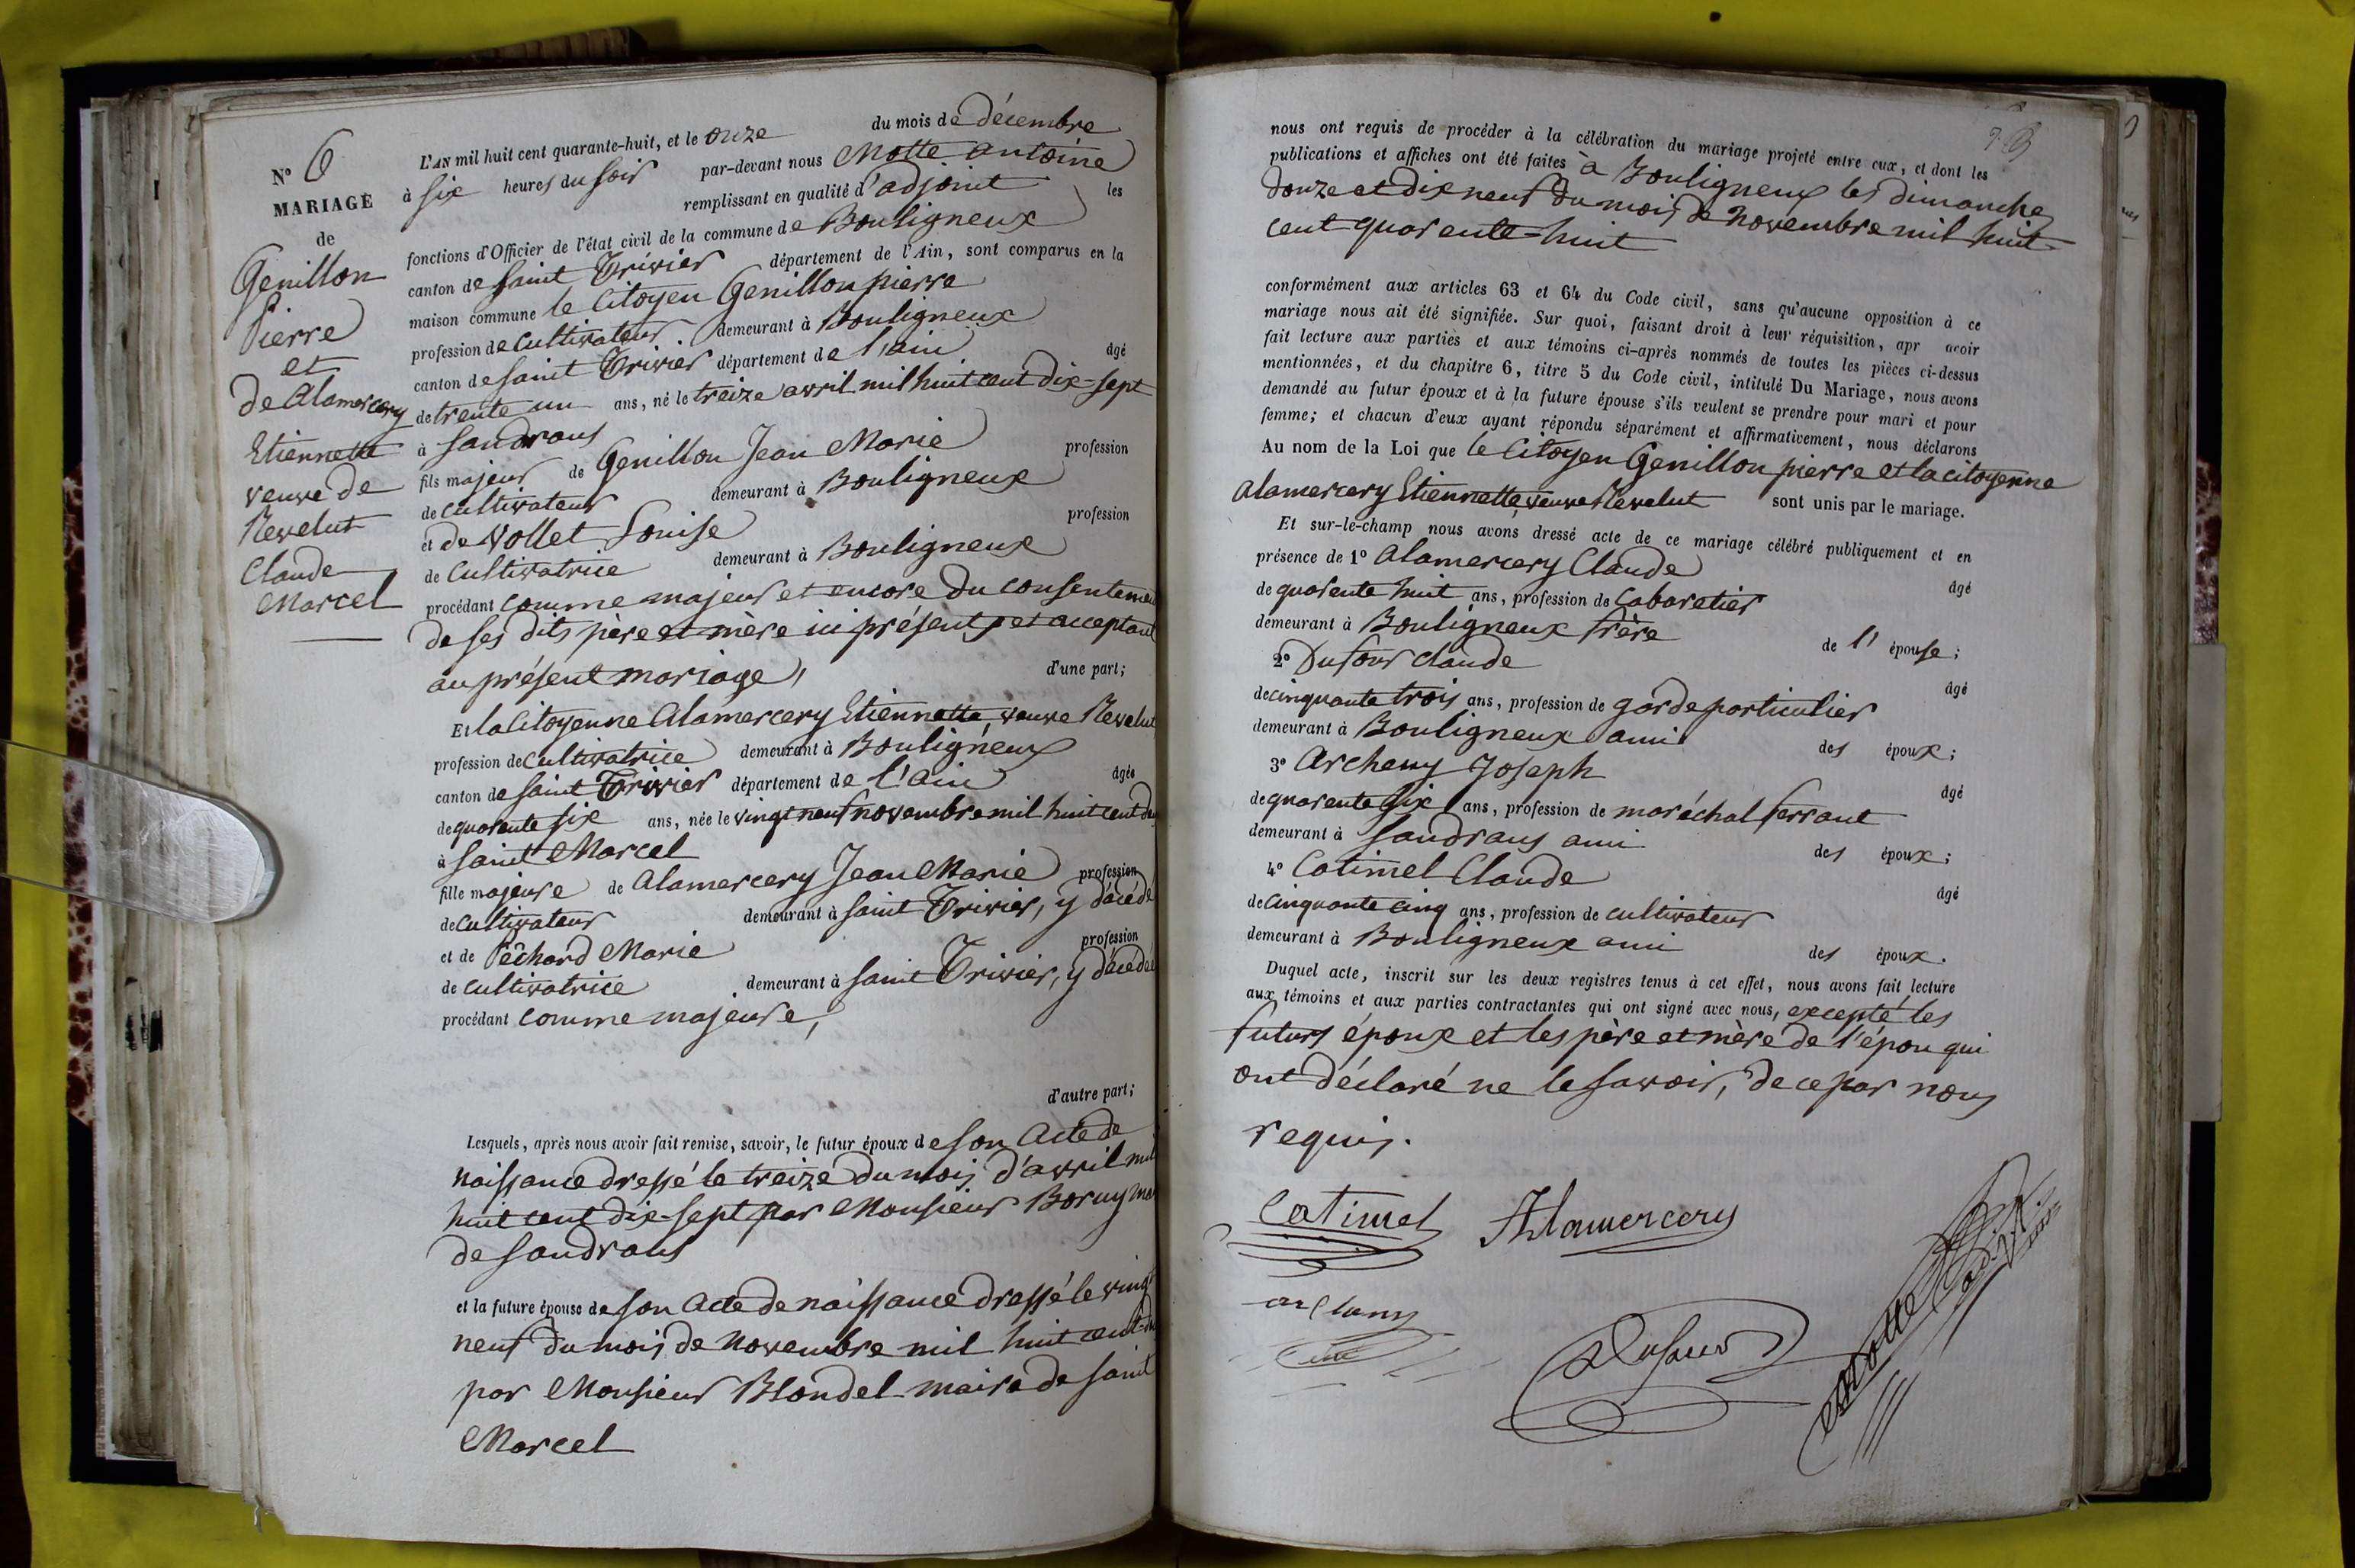 N° 6
MARIAGE
de
Genillon
Pierre
et
de Alamercery
Etiennette
veuve de
Revelut
Claude
Marcel
L'AN mil huit cent quarante-huit, et le onze du mois de décembre
à six heures du soir par-devant nous Motte antoine
remplissant en qualité d'adjoint les
fonctions d'Officier de l'état civil de la commune de Bouligneux
canton de saint Trivier département de l'Ain, sont comparus en la
maison commune le Citoyen Genillon pierre
profession de cultivateur demeurant à Bouligneux
canton de saint Trivier département de l'ain âgé
de trente un ans, né le treize avril mil huit cent dix-sept
à Sandrans
fils majeur de Genillon Jean Marie profession
de cultivateur demeurant à Bouligneux
et de Vollet Louise profession
de Cultivatrice demeurant à Bouligneux
procédant comme majeur et encore du consentemen
de ses dits père et mère ici présents et acceptant
au présent mariage, d'une part;
Et la Citoyenne Alamercery Etiennette, veuve Revelut
profession de Cultivatrice demeurant à Bouligneux
canton de saint Trivier département de l'ain âgée
de quarante six ans, née le vingt neuf novembre mil huit cent de
à saint Marcel
fille majeure de Alamercery Jean Marie profession
de cultivateur demeurant à saint Trivier, y décédé
et de Péchard Marie profession
de cultivatrice demeurant à saint Trivier, y décédée
procédant comme majeure,
d'autre part;
Lesquels, après nous avoir fait remise, savoir, le futur époux de son Acte de
naissance dressé le treize du mois d'avril mil
huit cent dix-sept par Monsieur Boruy
de Sandrans
et la future épouse de son Acte de naissance dressé le vingt
neuf du mois de novembre mil huit cent
par Monsieur Blondel maire de saint
Marcel
nous ont requis de procéder à la célébration du mariage projeté entre eux, et dont les
publications et affiches ont été faites à Bouligneux les dimanches
douze et dix neuf du mois de Novembre mil huit
cent quarente-huit
conformément aux articles 63 et 64 du Code civil, sans qu'aucune opposition à ce
mariage nous ait été signifiée. Sur quoi, faisant droit à leur réquisition, apr avoir
fait lecture aux parties et aux témoins ci-après nommés de toutes les pièces ci-dessus
mentionnées, et du chapitre 6, titre 5 du Code civil, intitulé Du Mariage, nous avons
demandé au futur époux et à la future épouse s'ils veulent se prendre pour mari et pour
femme; et chacun d'eux ayant répondu séparément et affirmativement, nous déclarons
Au nom de la Loi que le Citoyen Genillon pierre et la citoyenne
Alamercery Etiennette, veuve Revelut sont unis par le mariage.
Et sur-le-champ nous avons dressé acte de ce mariage célébré publiquement et en
présence de 1° Alamercery Claude âgé
de quarente huit ans, profession de Cabaretier
demeurant à Bouligneux frère de l' épouse;
2° Dufour Claude âgé
de cinquante trois ans, profession de garde particulier
demeurant à Bouligneux ami des époux;
3° Archeny Joseph âgé
de quarente six ans, profession de maréchal ferrant
demeurant à Sandrans ami des époux;
4° Catimel Claude âgé
de Cinquante cinq ans, profession de cultivateur
demeurant à Bouligneux ami des époux.
Duquel acte, inscrit sur les deux registres tenus à cet effet, nous avons fait lecture
aux témoins et aux parties contractantes qui ont signé avec nous, excepté les
futurs époux et les père et mère de l'épou qui
ont déclaré ne le savoir, de ce par nous
requis.
Catimel Alamercery
Dufour Motte